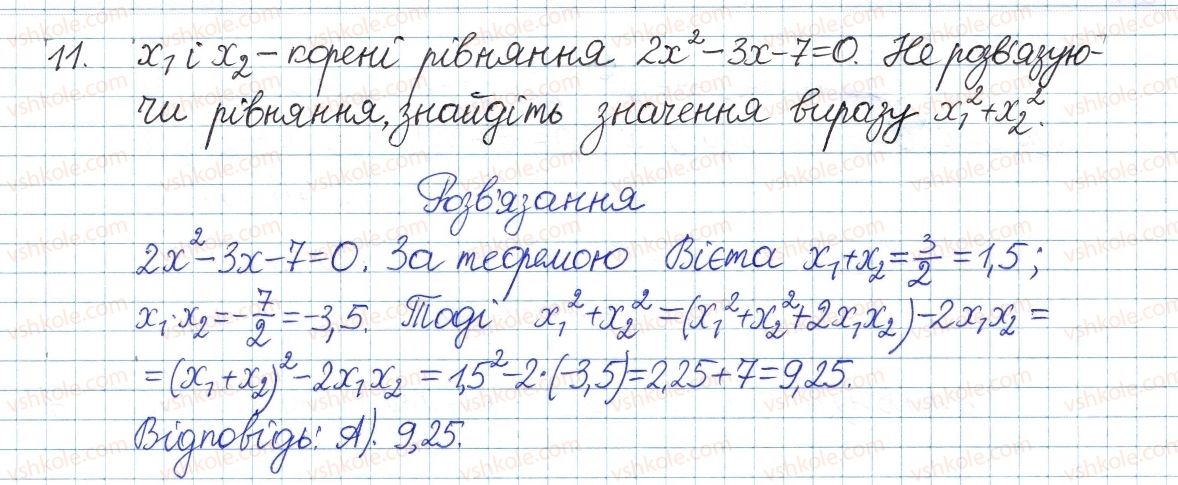 11. x₁ і x₂ – корені рівняння 2x² – 3x – 7 = 0. Не розв'язую-
чи рівняння, знайдіть значення виразу x₁² + x₂².
Розв'язання
2x² – 3x – 7 = 0. За теоремою Вієта x₁ + x₂ = 3/2 = 1,5;
x₁ · x₂ = –7/2 = –3,5. Тоді x₁² + x₂² = (x₁² + x₂² + 2x₁x₂) – 2x₁x₂ =
= (x₁ + x₂)² – 2x₁x₂ = 1,5² – 2·(–3,5) = 2,25 + 7 = 9,25.
Відповідь: А). 9,25.